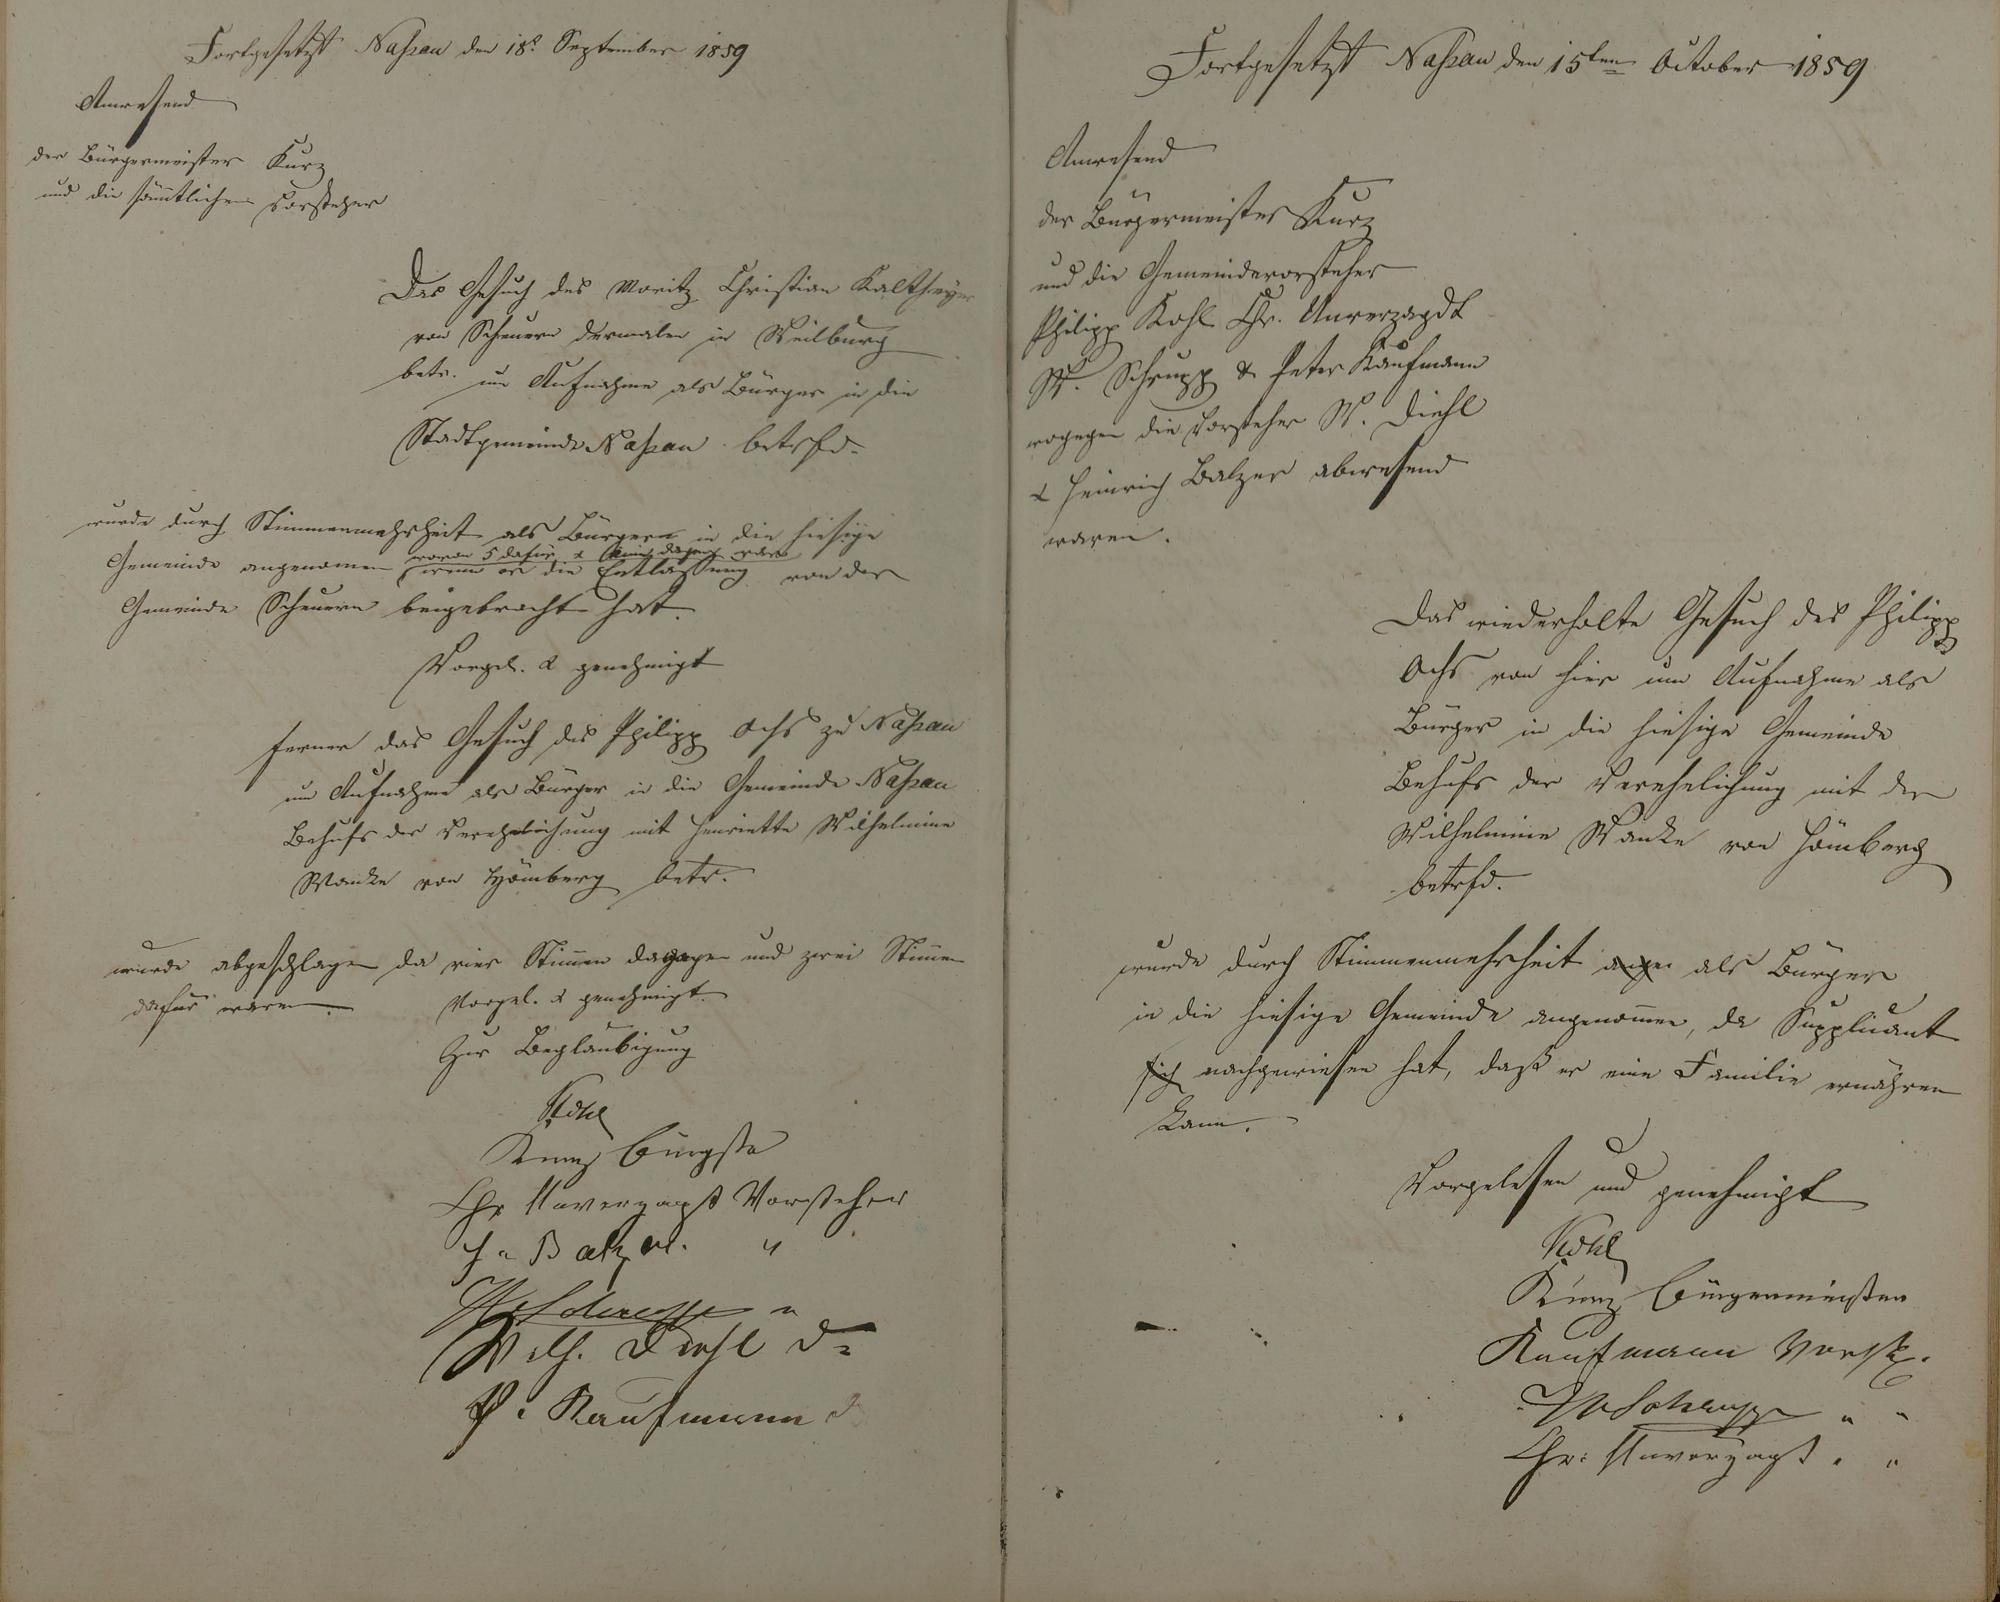 Fortgesetzt Naßau den 18t September 1859
Anwesend
der Bürgermeister Kurz
und die sämtlichen Vorsteher
Das Gesuch des Moritz Christian
von Scheuern dermalen in Weilburg
betr. um Aufnahme als Bürger in die
Stadtgemeinde Naßau betrfd.
wurde durch Stimmenmehrheit als Bürger in die hiesige
wovon 5 dafür & dagegen war
Gemeinde angenomen wenn er die Entlassung von der
Gemeinde Scheuern beigebracht hat.
Vorgel. & genehmigt
ferner das Gesuch des Philipp Ochs zu Naßau
um Aufnahme als Bürger in die Gemeinde Naßau
Behufs der Verehelichung mit Henriette Wilhelmine
Wanke von Hömberg betr.
wurde abgeschlagen da vier Stimen dagegen und zwei Stimen
dafür waren.
Vorgel. & genehmigt.
Zur Beglaubigung
Kohl
Kurz Bürgstr
Chr Unverzagt Vorsteher
H. Balzer. "
W Schrupp "
Wilh. Diehl d=
P. Kaufmann d
Fortgesetzt Naßau den 15ten October 1859
Anwesend
der Bürgermeister Kurz
und die Gemeindevorsteher
Philipp Kohl Chr. Unverzagdt
W. Schrupp & Peter Kaufmann
wogegen die Vorsteher W. Diehl
& Heinrich Balzer abwesend
waren.
Das wiederholte Gesuch des Philipp
Ochs von hier um Aufnahme als
Bürger in die hiesige Gemeinde
Behufs der Verehelichung mit der
Wilhelmine Wanke von Hömberg
betrfd.
wurde durch Stimmenmehrheit ange als Bürger
in die hiesige Gemeinde angenomen, da Supplicant
sich nachgewiesen hat, daß er eine Familie ernähren
kann.
Vorgelesen und genehmigt
Kohl
Kurz Bürgermeister
Kaufmann Vorst.
W Schrupp " "
Chr: Unverzagt " "